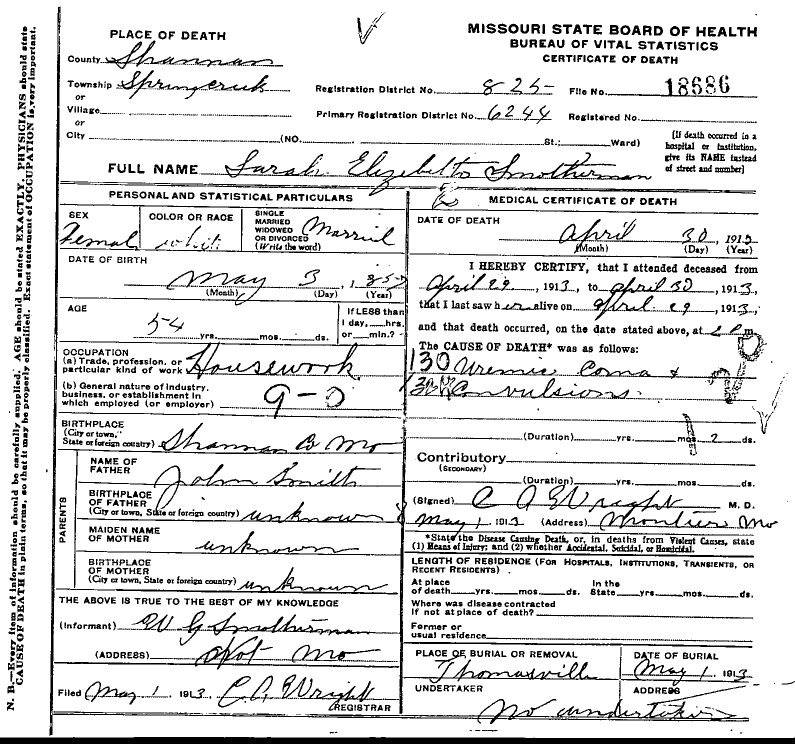 MISSOURI STATE BOARD OF HEALTH
BUREAU OF VITAL STATISTICS
CERTIFICATE OF DEATH
PLACE OF DEATH
County Shannon
Township Springcreek
or
Village
or
City (NO. St.; Ward)
Registration District No. 825 File No. 18686
Primary Registration District No. 6244 Registered No.
(If death occurred in a
hospital or institution,
give its NAME instead
of street and number)
FULL NAME Sarah Elizabeth Smotherman
PERSONAL AND STATISTICAL PARTICULARS
SEX
Female
COLOR OR RACE
white
SINGLE
MARRIED
WIDOWED
OR DIVORCED
(Write the word)
Married
DATE OF BIRTH
May 3, 185
(Month) (Day) (Year)
AGE
54 yrs. mos. ds.
If LESS than
1 day, hrs.
or min.?
OCCUPATION
(a) Trade, profession, or
particular kind of work Housework
(b) General nature of industry,
business, or establishment in
which employed (or employer)
9-0
BIRTHPLACE
(City or town,
State or foreign country) Shannon Co Mo
PARENTS
NAME OF
FATHER
John Smith
BIRTHPLACE
OF FATHER
(City or town, State or foreign country) unknown
MAIDEN NAME
OF MOTHER
unknown
BIRTHPLACE
OF MOTHER
(City or town, State or foreign country) unknown
THE ABOVE IS TRUE TO THE BEST OF MY KNOWLEDGE
(Informant) W G Smotherman
(ADDRESS) Spot Mo
Filed May 1, 1913 C A Wright
REGISTRAR
MEDICAL CERTIFICATE OF DEATH
DATE OF DEATH
April 30, 1913
(Month) (Day) (Year)
I HEREBY CERTIFY, that I attended deceased from
April 29, 1913, to April 30, 1913,
that I last saw her alive on April 29, 1913,
and that death occurred, on the date stated above, at 2 P m.
The CAUSE OF DEATH* was as follows:
130 Uremic Coma &
Convulsions.
(Duration) yrs. mos. 2 ds.
Contributory
(SECONDARY)
(Duration) yrs. mos. ds.
(Signed) C A Wright M. D.
May 1 1913 (Address) Montier Mo
*State the Disease Causing Death, or, in deaths from Violent Causes, state
(1) Means of Injury; and (2) whether Accidental, Suicidal, or Homicidal.
LENGTH OF RESIDENCE (FOR HOSPITALS, INSTITUTIONS, TRANSIENTS, OR
RECENT RESIDENTS)
At place
of death yrs. mos. ds.
In the
State yrs. mos. ds.
Where was disease contracted
if not at place of death?
Former or
usual residence
PLACE OF BURIAL OR REMOVAL
Thomasville
DATE OF BURIAL
May 1, 1913
UNDERTAKER
No undertaker
ADDRESS
N. B.—Every item of information should be carefully supplied. AGE should be stated EXACTLY. PHYSICIANS should state
CAUSE OF DEATH in plain terms, so that it may be properly classified. Exact statement of OCCUPATION is very important.